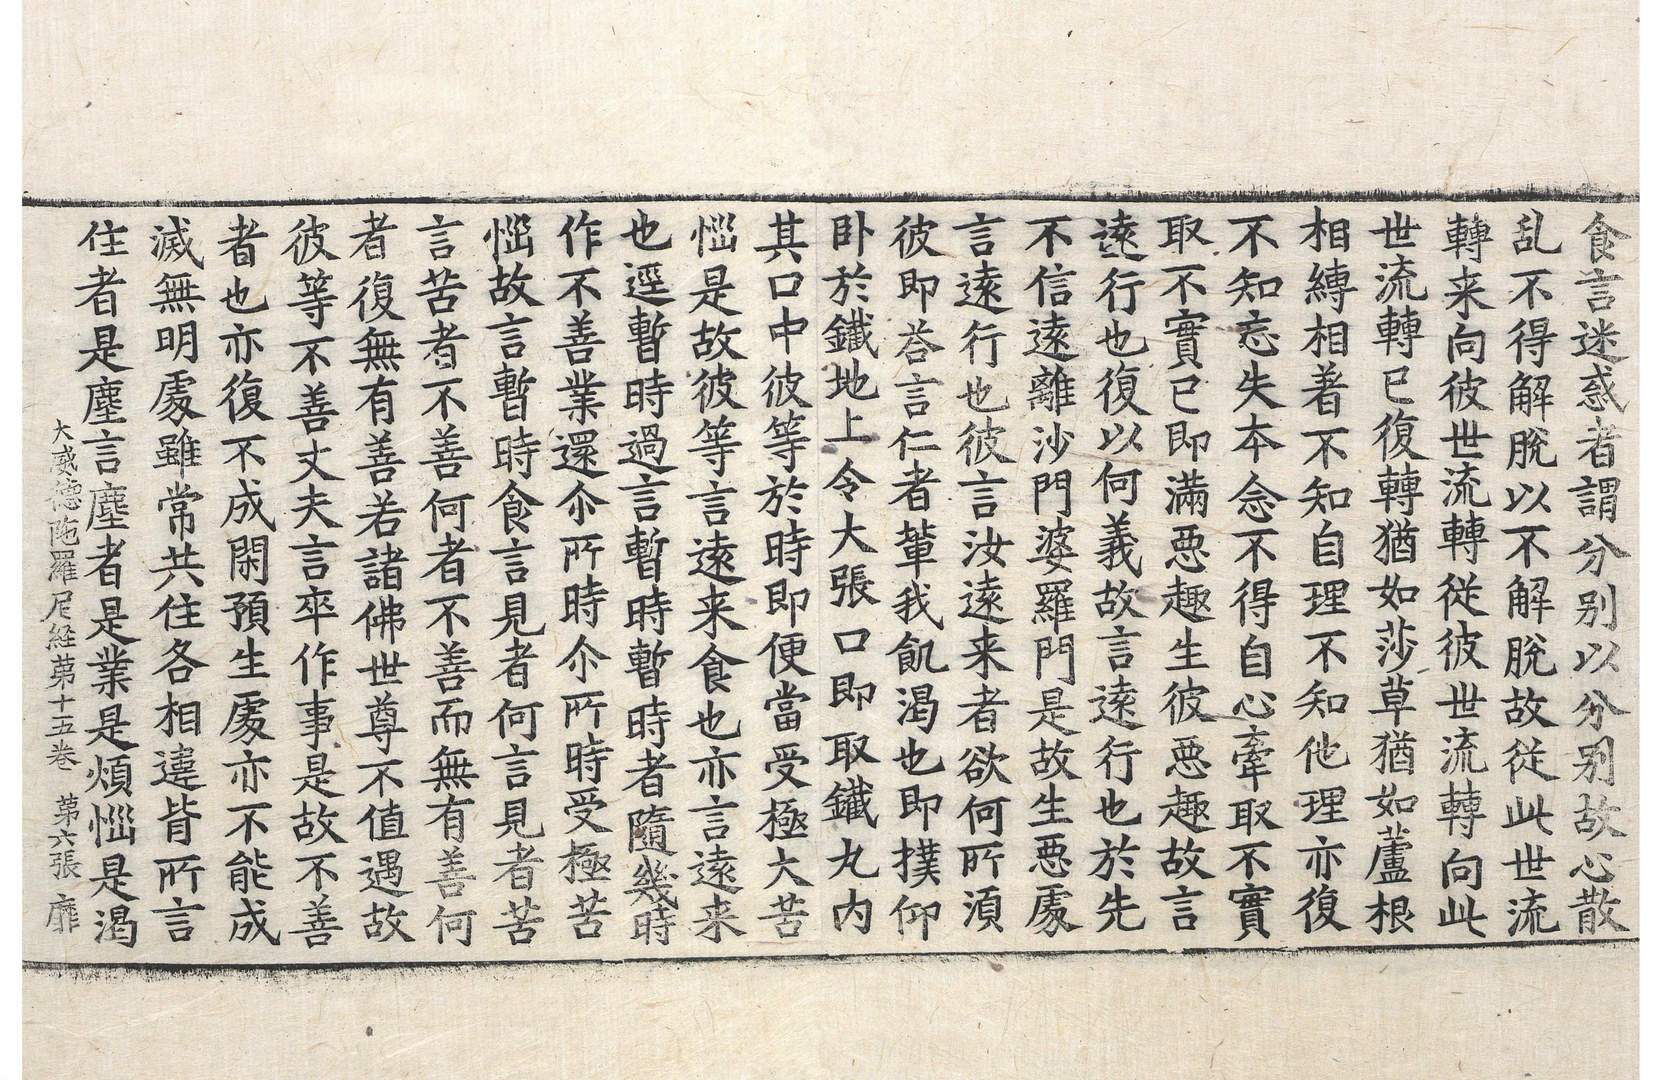 食言迷惑者謂分别以分别故心散
乱不得解脫以不解脫故從此世流
轉来向彼世流轉從彼世流轉向此
世流轉已復轉猶如莎草猶如蘆根
相縛相著不知自理不知他理亦復
不知忘失本念不得自心牽取不實
取不實已即滿惡趣生彼惡趣故言
遠行也復以何義故言遠行也於先
不信遠離沙門婆羅門是故生惡處
言遠行也彼言汝遠来者欲何所湏
彼即荅言仁者軰我飢渴也即撲仰
卧於鐵地上令大張口即取鐵丸内
其口中彼等於時即便當受極大苦
惱是故彼等言遠来食也亦言遠来
也逕暫時過言暫時暫時者隨幾時
作不善業還尒所時尒所時受極苦
惱故言暫時食言見者何言見者苦
言苦者不善何者不善而無有善何
者復無有善若諸佛世尊不值遇故
彼等不善丈夫言卒作事是故不善
者也亦復不成閑預生處亦不能成
滅無明處雖常共住各相違背所言
住者是塵言塵者是業是煩惱是渴
大威德陁羅尼経苐十五卷 苐六張 靡